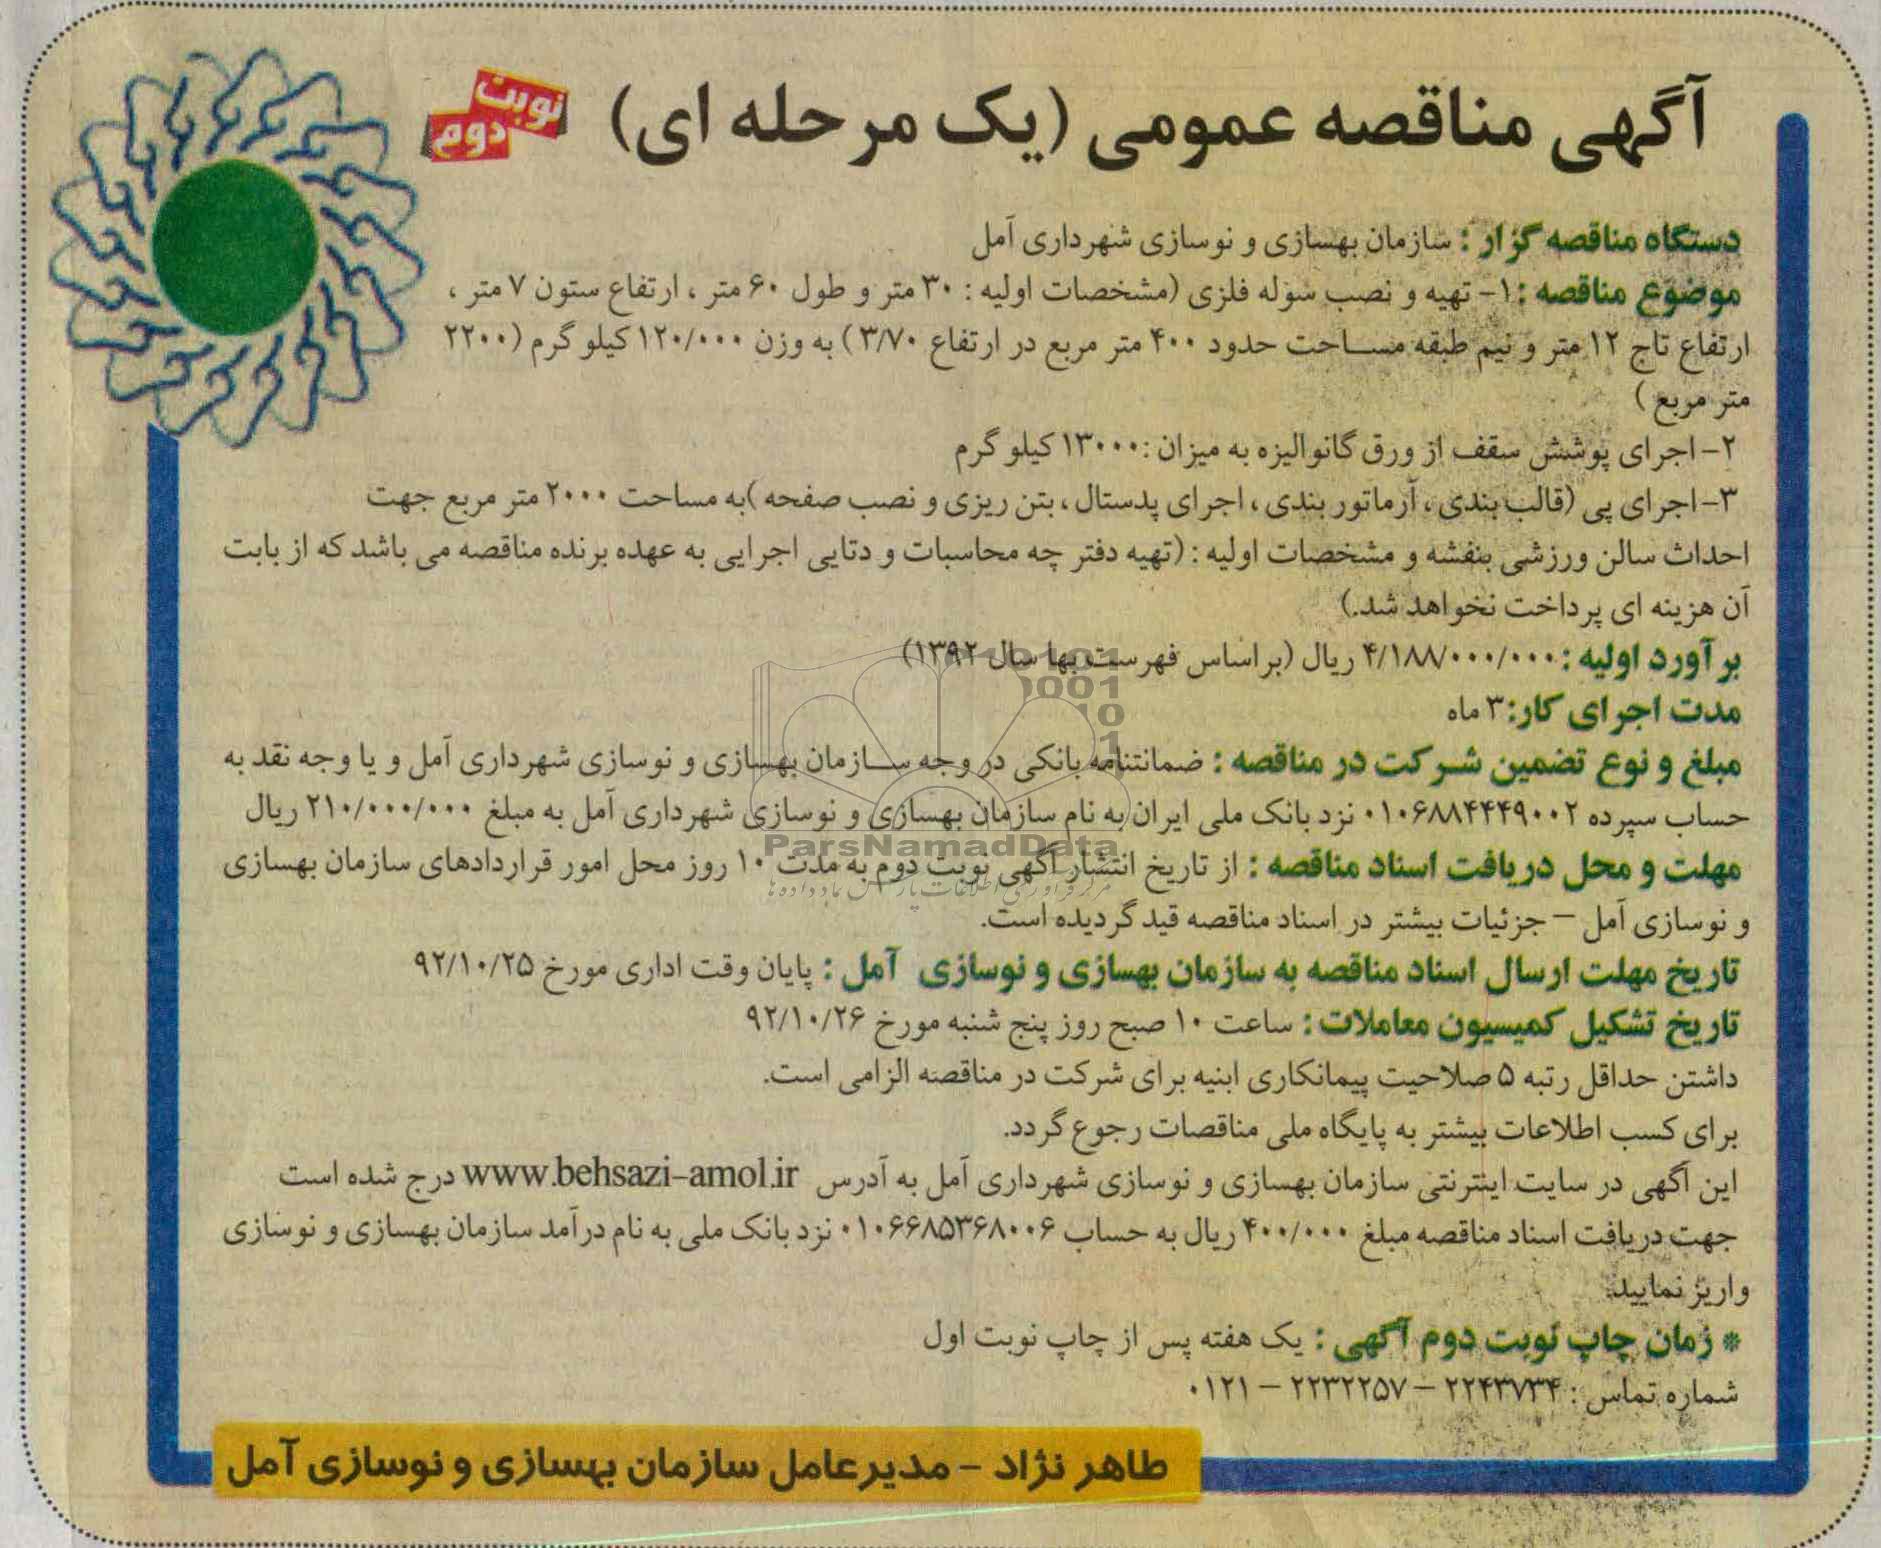 آگهی مناقصه عمومی (یک مرحله ای)
نوبت دوم
دستگاه مناقصه گزار : سازمان بهسازی و نوسازی شهرداری آمل
موضوع مناقصه :۱- تهیه و نصب سوله فلزی (مشخصات اولیه : ۳۰ متر و طول ۶۰ متر ، ارتفاع ستون ۷ متر ،
ارتفاع تاج ۱۲ متر و نیم طبقه مساحت حدود ۴۰۰ متر مربع در ارتفاع ۳/۷۰ ) به وزن ۱۲۰/۰۰۰ کیلو گرم (۲۲۰۰
متر مربع )
۲- اجرای پوشش سقف از ورق گانوالیزه به میزان :۱۳۰۰۰ کیلو گرم
۳- اجرای پی (قالب بندی ، آرماتور بندی ، اجرای پدستال ، بتن ریزی و نصب صفحه )به مساحت ۲۰۰۰ متر مربع جهت
احداث سالن ورزشی بنفشه و مشخصات اولیه : (تهیه دفتر چه محاسبات و دتایی اجرایی به عهده برنده مناقصه می باشد که از بابت
آن هزینه ای پرداخت نخواهد شد.)
بر آورد اولیه :۴/۱۸۸/۰۰۰/۰۰۰ ریال (بر اساس فهرست بها سال ۱۳۹۲)
مدت اجرای کار:۳ ماه
مبلغ و نوع تضمین شرکت در مناقصه : ضمانتنامه بانکی در وجه سازمان بهسازی و نوسازی شهرداری آمل و یا وجه نقد به
حساب سپرده ۰۱۰۶۸۸۴۴۴۹۰۰۲ نزد بانک ملی ایران به نام سازمان بهسازی و نوسازی شهرداری آمل به مبلغ ۲۱۰/۰۰۰/۰۰۰ ریال
مهلت و محل دریافت اسناد مناقصه : از تاریخ انتشار آگهی نوبت دوم به مدت ۱۰ روز محل امور قراردادهای سازمان بهسازی
و نوسازی آمل – جزئیات بیشتر در اسناد مناقصه قید گردیده است.
تاریخ مهلت ارسال اسناد مناقصه به سازمان بهسازی و نوسازی آمل : پایان وقت اداری مورخ ۹۲/۱۰/۲۵
تاریخ تشکیل کمیسیون معاملات : ساعت ۱۰ صبح روز پنج شنبه مورخ ۹۲/۱۰/۲۶
داشتن حداقل رتبه ۵ صلاحیت پیمانکاری ابنیه برای شرکت در مناقصه الزامی است.
برای کسب اطلاعات بیشتر به پایگاه ملی مناقصات رجوع گردد.
این آگهی در سایت اینترنتی سازمان بهسازی و نوسازی شهرداری آمل به آدرس www.behsazi-amol.ir درج شده است
جهت دریافت اسناد مناقصه مبلغ ۴۰۰/۰۰۰ ریال به حساب ۰۱۰۶۶۸۵۳۶۸۰۰۶ نزد بانک ملی به نام درآمد سازمان بهسازی و نوسازی
واریز نمایید.
* زمان چاپ نوبت دوم آگهی : یک هفته پس از چاپ نوبت اول
شماره تماس : ۲۲۴۳۷۳۴ – ۲۲۳۲۲۵۷ – ۰۱۲۱
طاهر نژاد - مدیرعامل سازمان بهسازی و نوسازی آمل
ParsNamadData